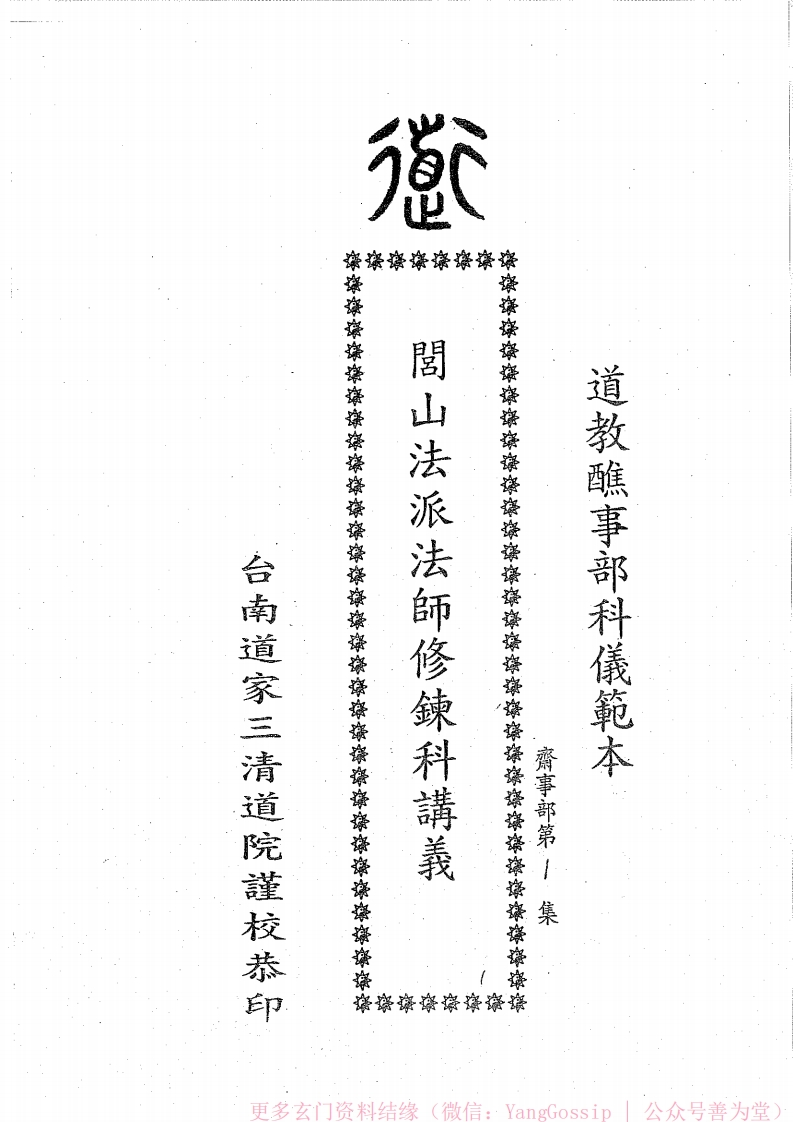 道
道教醮事部科儀範本
齋事部第1集
閭山法派法師修鍊科講義
台南道家三清道院謹校恭印
更多玄门资料结缘（微信：YangGossip | 公众号善为堂）